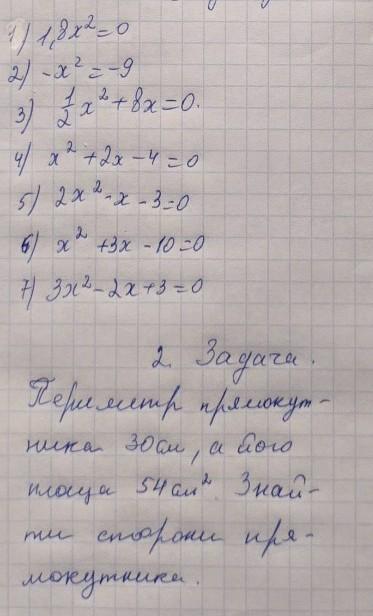 1) 1,8x²=0
2) -x²=-9
3) ½x²+8x=0.
4) x²+2x-4=0
5) 2x²-x-3=0
6) x²+3x-10=0
7) 3x²-2x+3=0
2. Задача.
Периметр прямокут-
ника 30см, а його
площа 54см². Знай-
ти сторони пря-
мокутника.